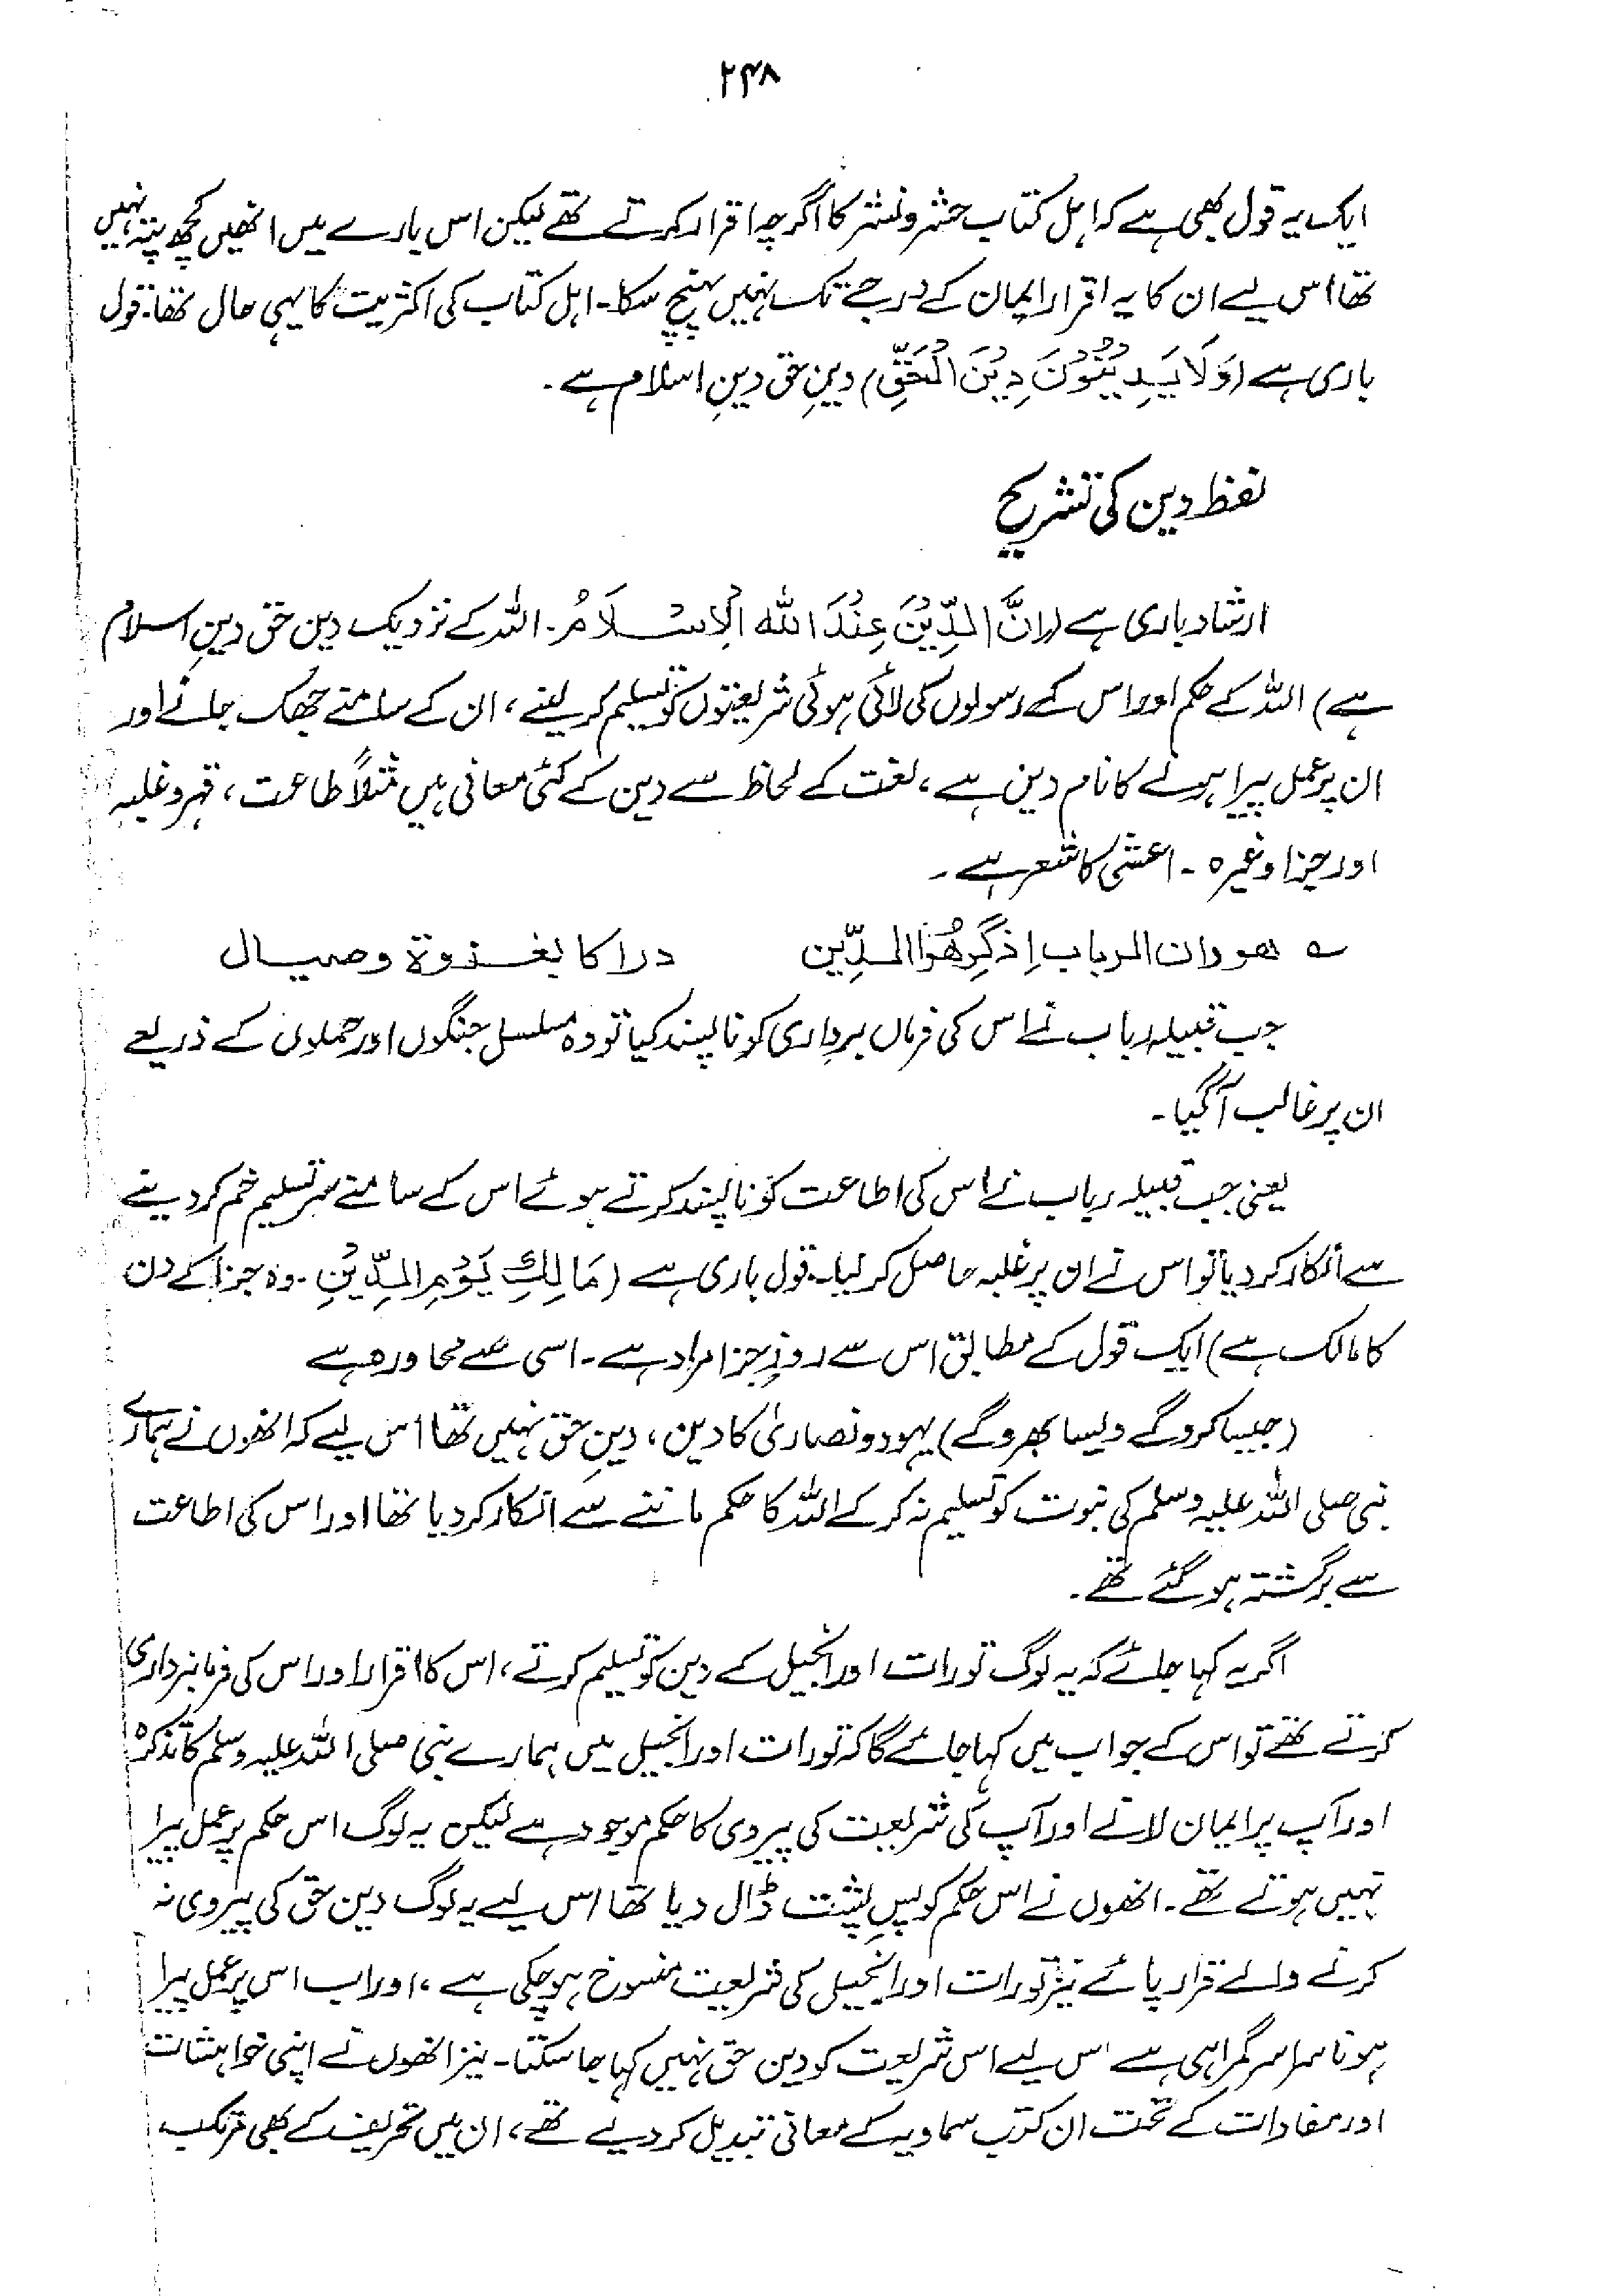 ۲۴۸
ایک یہ قول بھی ہے کہ اہل کتاب حشر و نشر کا اگرچہ اقرار کرتے تھے لیکن اس بارے میں انھیں کچھ پتہ نہیں
تھا اس لیے ان کا یہ اقرار ایمان کے درجے تک نہیں پہنچ سکا۔ اہل کتاب کی اکثریت کا یہی حال تھا۔ قول
باری ہے (وَلَا یَدِیْنُوْنَ دِیْنَ الْحَقِّ) دینِ حق دینِ اسلام ہے۔
لفظ دین کی تشریح
ارشاد باری ہے (اِنَّ الدِّیْنَ عِنْدَ اللّٰہ الْاِسْلَامُ۔ اللہ کے نزدیک دین حق دینِ اسلام
ہے) اللہ کے حکم اور اس کے رسولوں کی لائی ہوئی شریعتوں کو تسلیم کر لینے، ان کے سامنے جھک جانے اور
ان پر عمل پیرا ہونے کا نام دین ہے، لغت کے لحاظ سے دین کے کئی معانی ہیں مثلاً طاعت، قہر و غلبہ
اور جزا وغیرہ۔ اعشی کا شعر ہے۔
؎ ھو دان الرباب اِذ کَرِھُوا الدِّین دراکا بغزوۃ وصیال
جب قبیلہ رباب نے اس کی فرماں برداری کو ناپسند کیا تو وہ مسلسل جنگوں اور حملوں کے ذریعے
ان پر غالب آگیا۔
یعنی جب قبیلہ رباب نے اس کی اطاعت کو ناپسند کرتے ہوئے اس کے سامنے سر تسلیم خم کر دینے
سے انکار کر دیا تو اس نے ان پر غلبہ حاصل کر لیا۔ قول باری ہے (مَالِكِ یَوْمِ الدِّیْنِ۔ وہ جزا کے دن
کا مالک ہے) ایک قول کے مطابق اس سے روزِ جزا مراد ہے۔ اسی سے محاورہ ہے
(جیسا کرو گے ویسا بھرو گے) یہود و نصاریٰ کا دین، دینِ حق نہیں تھا اس لیے کہ انھوں نے ہمارے
نبی صلی اللہ علیہ وسلم کی نبوت کو تسلیم نہ کر کے اللہ کا حکم ماننے سے انکار کر دیا تھا اور اس کی اطاعت
سے برگشتہ ہو گئے تھے۔
اگر یہ کہا جائے کہ یہ لوگ تورات اور انجیل کے دین کو تسلیم کرتے، اس کا اقرار اور اس کی فرمانبرداری
کرتے تھے تو اس کے جواب میں کہا جائے گا کہ تورات اور انجیل میں ہمارے نبی صلی اللہ علیہ وسلم کا تذکرہ
اور آپ پر ایمان لانے اور آپ کی شریعت کی پیروی کا حکم موجود ہے لیکن یہ لوگ اس حکم پر عمل پیرا
نہیں ہوتے تھے۔ انھوں نے اس حکم کو پسِ پشت ڈال دیا تھا اس لیے یہ لوگ دین حق کی پیروی نہ
کرنے والے قرار پائے نیز تورات اور انجیل کی شریعت منسوخ ہو چکی ہے، اور اب اس پر عمل پیرا
ہونا سراسر گمراہی ہے اس لیے اس شریعت کو دین حق نہیں کہا جا سکتا۔ نیز انھوں نے اپنی خواہشات
اور مفادات کے تحت ان کتب سماویہ کے معانی تبدیل کر دیے تھے، ان میں تحریف کے بھی مرتکب